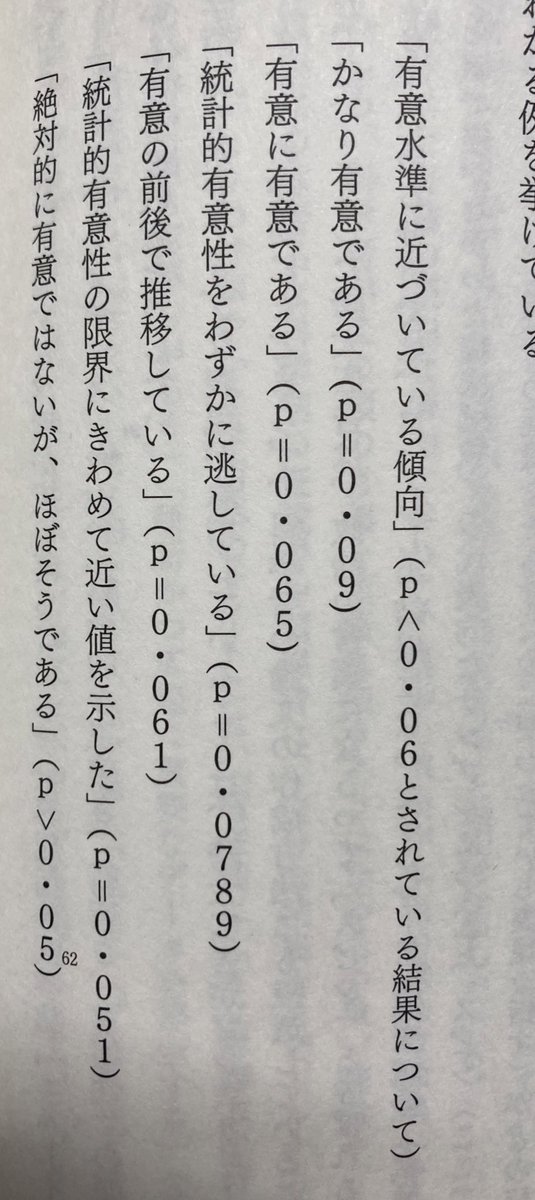 わかる例を挙げている
「有意水準に近づいている傾向」(p<0・06とされている結果について)
「かなり有意である」(p=0・09)
「有意に有意である」(p=0・065)
「統計的有意性をわずかに逃している」(p=0・0789)
「有意の前後で推移している」(p=0・061)
「統計的有意性の限界にきわめて近い値を示した」(p=0・051)
「絶対的に有意ではないが、ほぼそうである」(p>0・05)62